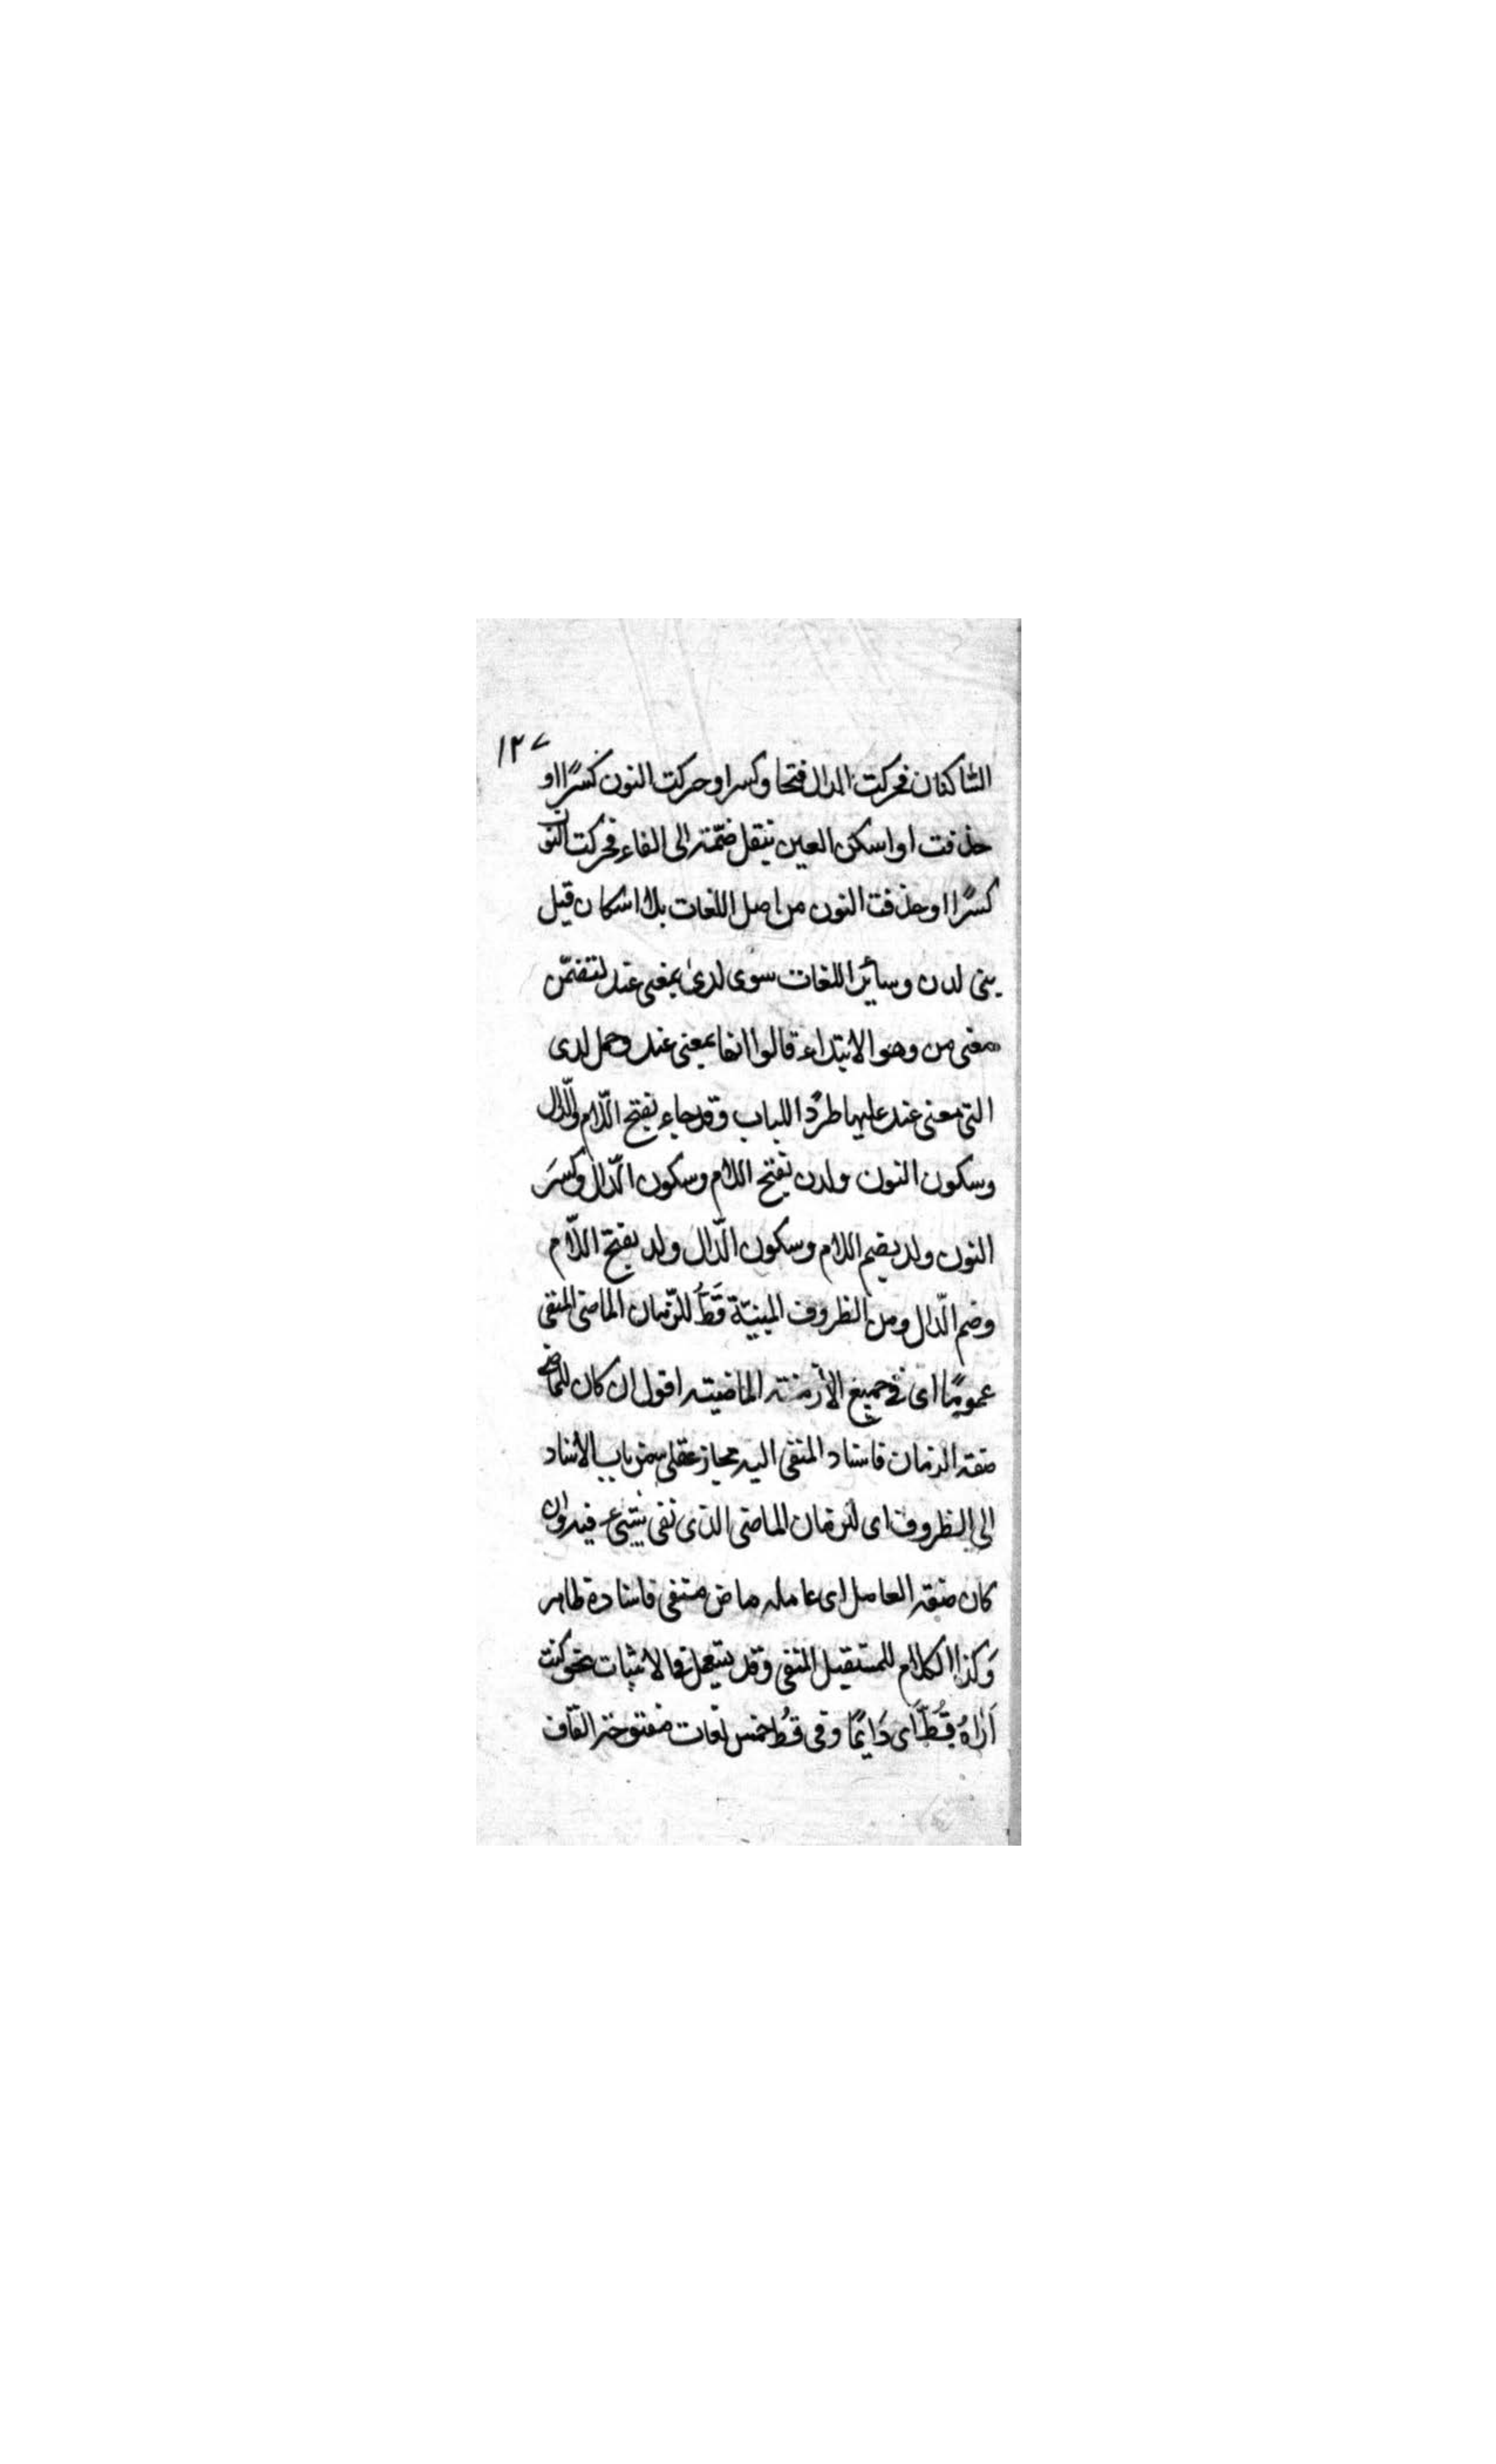 ١٢٧
الساكنان فحركت الدال فتحا وكسرا وحركت النون كسرًا او
حذفت او اسكن العين بنقل ضمّته الى الفاء فحركت النون
كسرًا او حذفت النون من اصل اللغات بلا اسكان قيل
بنى لدن وسائر اللغات سوى لدى بمعنى عند لتضمّن
معنى من وهو الابتداء قالوا انها بمعنى عند وحمل لدى
التى معنى عند عليها طردًا للباب وقد جاء بفتح اللّام والدّال
وسكون النون ولدن بفتح اللام وسكون الدّال وكسر
النون ولد بضم اللام وسكون الدّال ولد بفتح اللّام
وضم الدّال ومن الظروف المبنيّة قَطُّ للزّمان الماضى المنفى
عمومًا اى فى جميع الأزمنة الماضية اقول ان كان للماضى
صفة الزمان فاسناد المنفى اليه مجاز عقلى من باب الاسناد
الى الظروف اى للزمان الماضى الذى نفى شىء فيه وان
كان صفة العامل اى عامله ماض منفى فاسناده ظاهر
وَكذا الكلام للمستقبل المنفى وقد يستعمل فى الاثبات نحو كنت
اَراهُ قَطُّ اَى دَائمًا وفى قطُ خمس لغات مفتوحة القاف